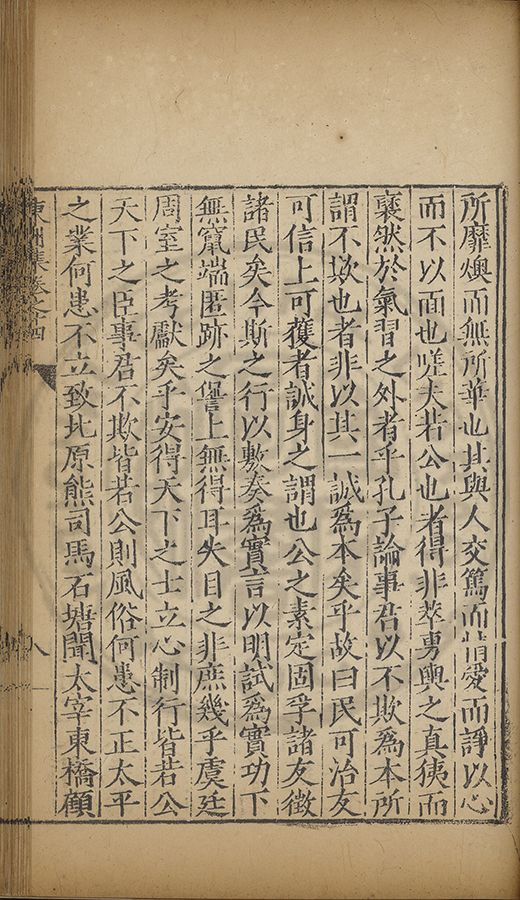 所靡燠而無所華也其與人交篤而情愛而諍以心
而不以面也嗟夫若公也者得非萃勇輿之真㹟而
裦然於氣習之外者乎孔子論事君以不欺為本所
謂不欺也者非以其一誠為本矣乎故曰民可治友
可信上可獲者誠身之謂也公之素定固孚諸友徵
諸民矣今斯之行以敷奏爲實言以明試爲實功下
無竄端匿跡之僿上無得耳失目之非庶幾乎虞廷
周室之考獻矣乎安得天下之士立心制行皆若公
天下之臣事君不欺皆若公則風俗何患不正太平
之業何患不立致北原熊司馬石塘聞太宰東橋顧
東洲集卷之十四
八